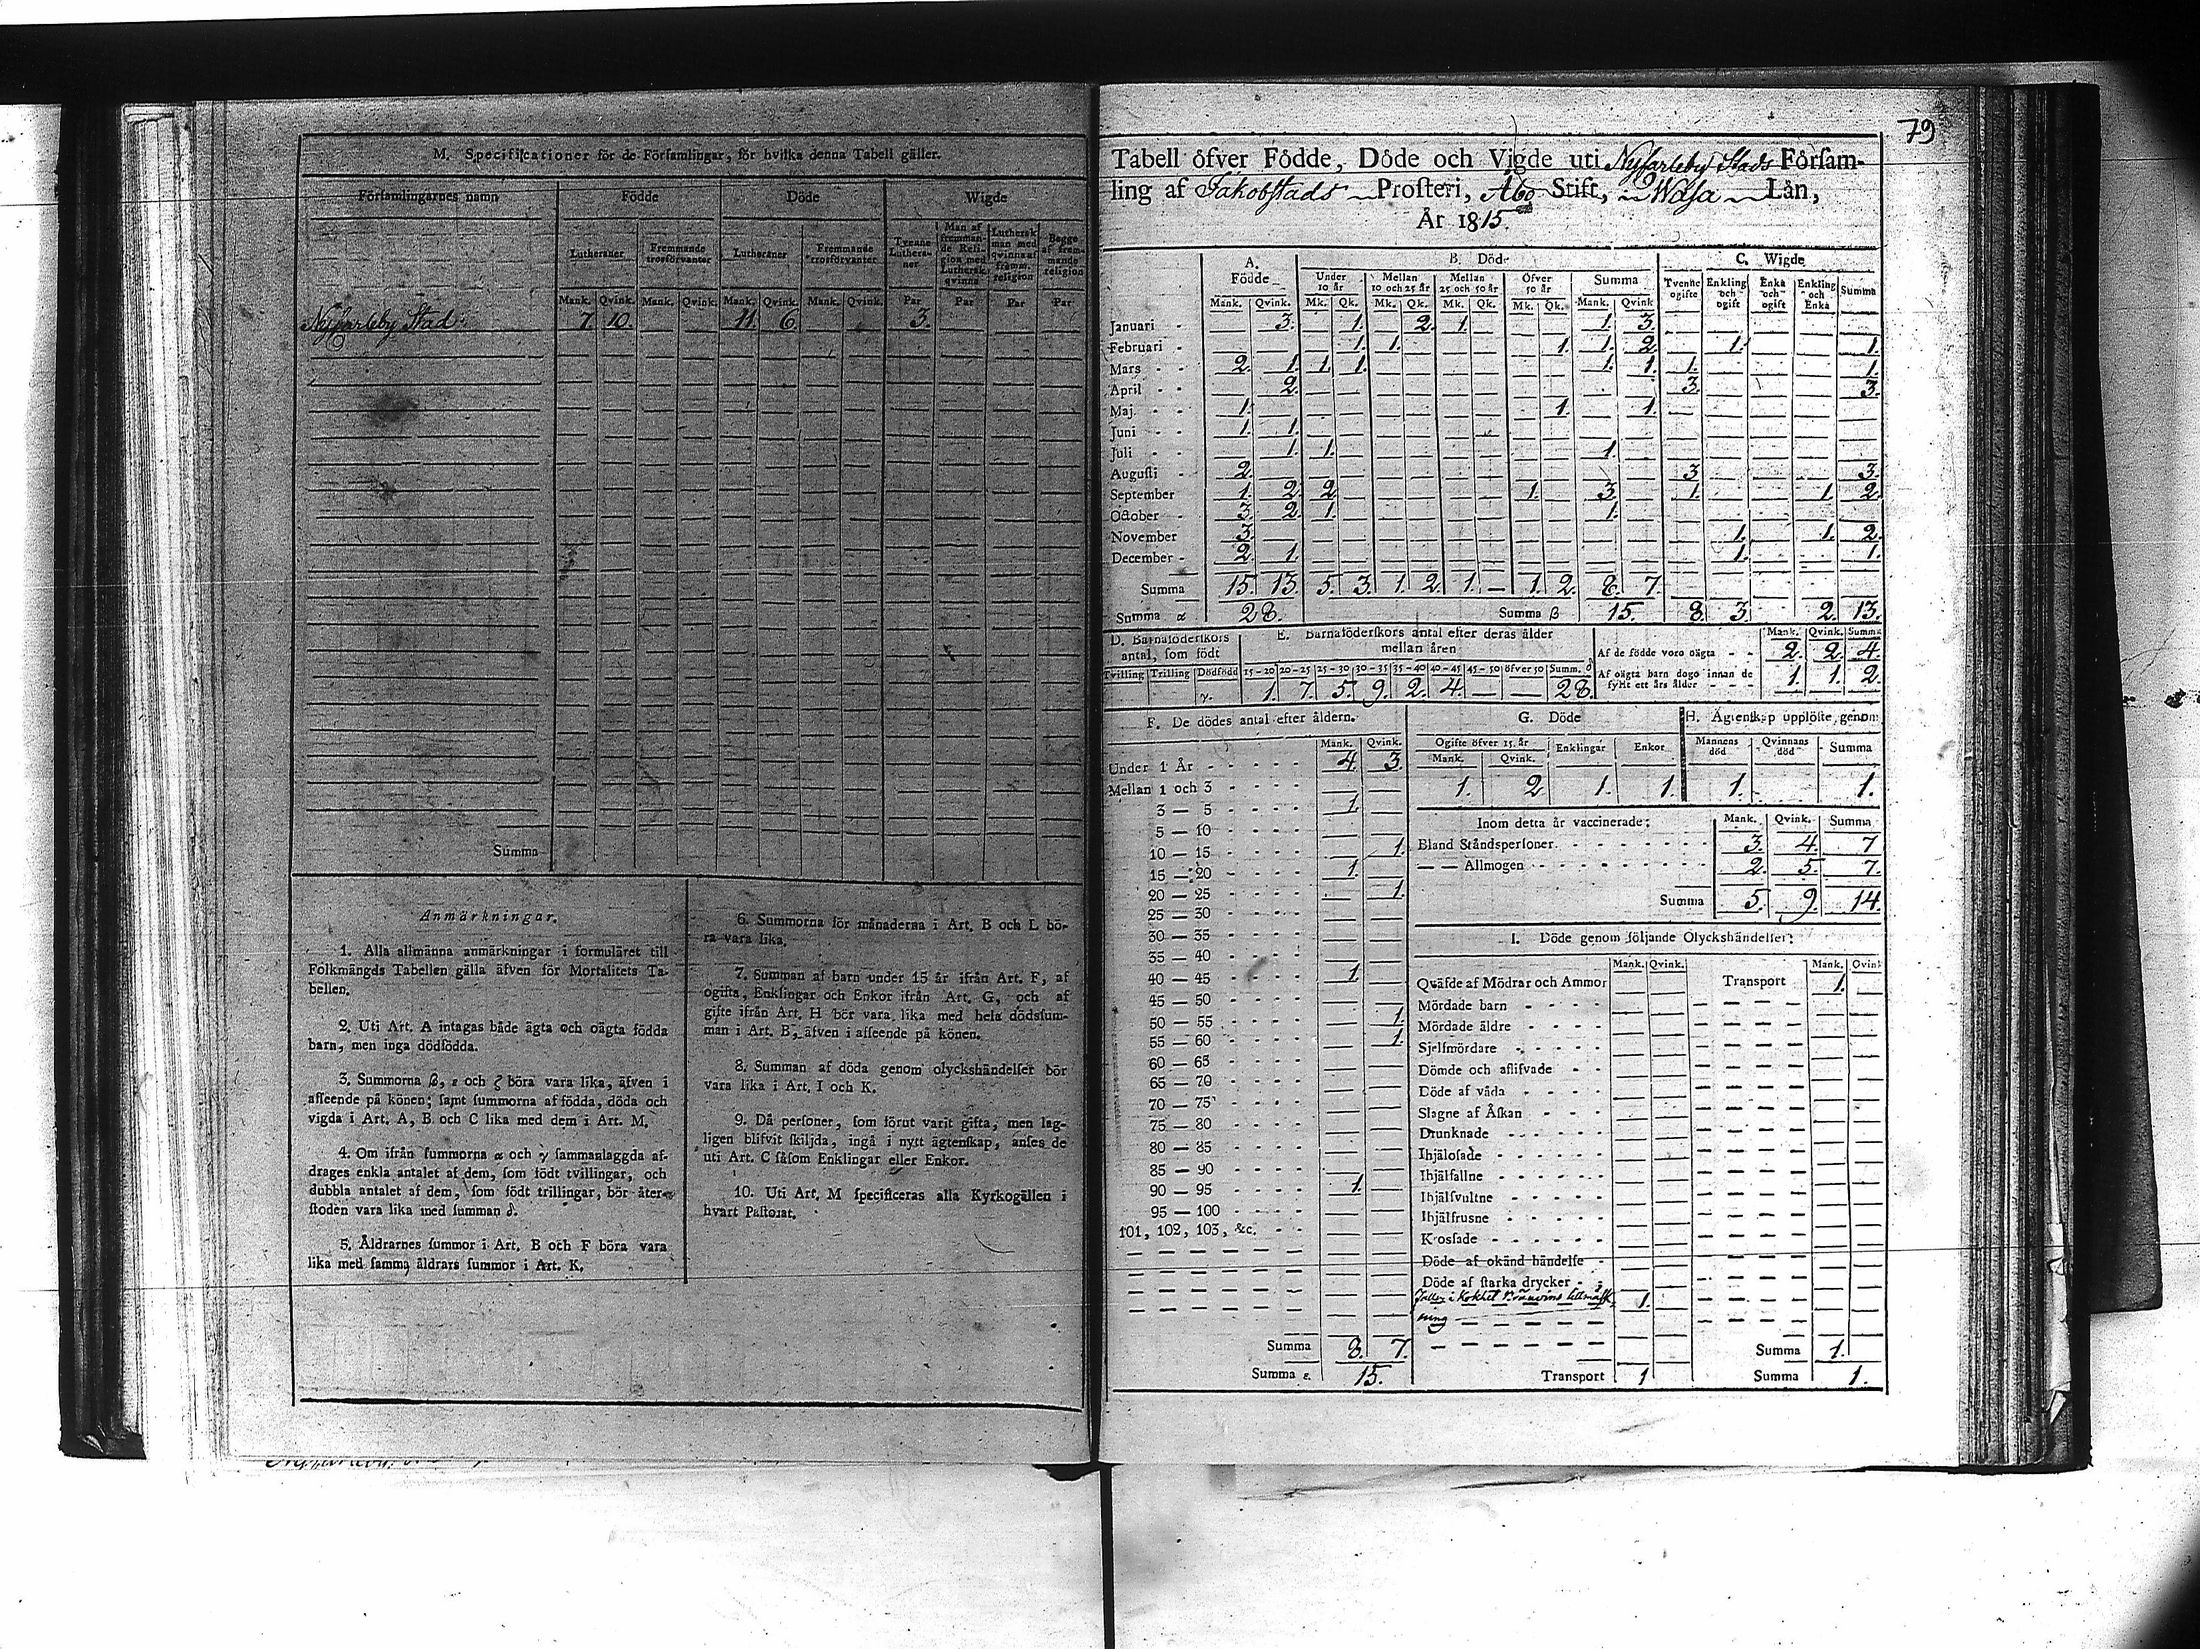 M. Specificationer för de Församlingar, för hvilka denna Tabell gäller.
Församlingarnes namn Födde Döde Wigde
Lutheraner Fremmande trosförvanter Lutheraner Fremmande trosförvanter Tvenne Lutheraner Man af fremmande Religion med Luthersk qvinna Luthersk man med qvinna af främm. religion Begge af fremmande religion
Mank. Qvink. Mank. Qvink. Mank. Qvink. Mank. Qvink. Par Par Par Par
Nyfarleby Stad 7. 10. 11. 6. 3.
Summa
Anmärkningar.
1. Alla allmänna anmärkningar i formuläret till
Folkmängds Tabellen gälla äfven för Mortalitets Ta-
bellen.
2. Uti Art. A intagas både ägta och oägta födda
barn, men inga dödfödda.
3. Summorna β, ε och ζ böra vara lika, äfven i
afseende på könen; samt summorna af födda, döda och
vigda i Art. A, B och C lika med dem i Art. M.
4. Om ifrån summorna α och γ sammanlaggda af-
drages enkla antalet af dem, som födt tvillingar, och
dubbla antalet af dem, som födt trillingar, bör åter-
stoden vara lika med summan δ.
5. Åldrarnes summor i Art. B och F böra vara
lika med samma åldrars summor i Art. K.
6. Summorna för månaderna i Art. B och L bö-
ra vara lika.
7. Summan af barn under 15 år ifrån Art. F, af
ogifta, Enklingar och Enkor ifrån Art. G, och af
gifte ifrån Art. H bör vara lika med hela dödssum-
man i Art. B, äfven i afseende på könen.
8. Summan af döda genom olyckshändelser bör
vara lika i Art. I och K.
9. Då personer, som förut varit gifta, men lag-
ligen blifvit skiljda, ingå i nytt ägtenskap, anses de
uti Art. C såsom Enklingar eller Enkor.
10. Uti Art. M specificeras alla Kyrkogällen i
hvart Pastorat.
79
Tabell öfver Födde, Döde och Vigde uti Nyfarleby Stads Församling
af Jakobstads Prosteri, Åbo Stift, Wasa Län,
År 1815.
A. Födde B. Döde C. Wigde
Under 10 år Mellan 10 och 25 år Mellan 25 och 50 år Öfver 50 år Summa Tvenne ogifte Enkling och ogift Enka och ogift Enkling och Enka Summa
Mank. Qvink. Mk. Qk. Mk. Qk. Mk. Qk. Mk. Qk. Mank. Qvink
Januari 3. 1. 2. 1. 1. 3.
Februari 1. 1. 1. 1. 2. 1. 1.
Mars 2. 1. 1. 1. 1. 1. 1. 1.
April 2. 3. 3.
Maj 1. 1. 1.
Juni 1. 1.
Juli 1. 1. 1.
Augusti 2. 3. 3.
September 1. 2. 2. 1. 3. 1. 1. 2.
October 3. 2. 1. 1.
November 3. 1. 1. 2.
December 2. 1. 1. 1.
Summa 15. 13. 5. 3. 1. 2. 1. — 1. 2. 8. 7.
Summa α 28. Summa β 15. 8. 3. 2. 13.
D. Barnaföderskors antal, som födt E. Barnaföderskors antal efter deras ålder mellan åren Mank. Qvink. Summa
Af de födde voro oägta 2. 2. 4.
Tvilling Trilling Dödfödd 15-20 20-25 25-30 30-35 35-40 40-45 45-50 öfver 50 Summ. δ
Af oägta barn dogo innan de fyllt ett års ålder 1. 1. 2.
γ. 1. 7. 5. 9. 2. 4. — — 28.
F. De dödes antal efter åldern.
Mank. Qvink.
Under 1 År 4. 3.
Mellan 1 och 3
3 — 5 1.
5 — 10
10 — 15 1.
15 — 20 1.
20 — 25 1.
25 — 30
30 — 35
35 — 40
40 — 45 1.
45 — 50
50 — 55 1.
55 — 60 1.
60 — 65
65 — 70
70 — 75
75 — 80
80 — 85
85 — 90
90 — 95 1.
95 — 100
101, 102, 103, &c.
Summa 8. 7.
Summa ε. 15.
G. Döde H. Ägtenskap upplöste, genom
Ogifte öfver 15 år Enklingar Enkor Mannens död Qvinnans död Summa
Mank. Qvink.
1. 2 1. 1. 1. 1.
Inom detta år vaccinerade: Mank. Qvink. Summa
Bland Ståndspersoner 3. 4. 7
— — Allmogen 2. 5. 7.
Summa 5. 9. 14.
I. Döde genom följande Olyckshändelser:
Mank. Qvink. Mank. Qvink
Qväfde af Mödrar och Ammor Transport 1.
Mördade barn
Mördade äldre
Sjelfmördare
Dömde och aflifvade
Döde af våda
Slagne af Åskan
Drunknade
Ihjälosade
Ihjälfallne
Ihjälsvultne
Ihjälfrusne
Krossade
Döde af okänd händelse
Döde af starka drycker
1.
Summa 1.
Transport 1 Summa 1.